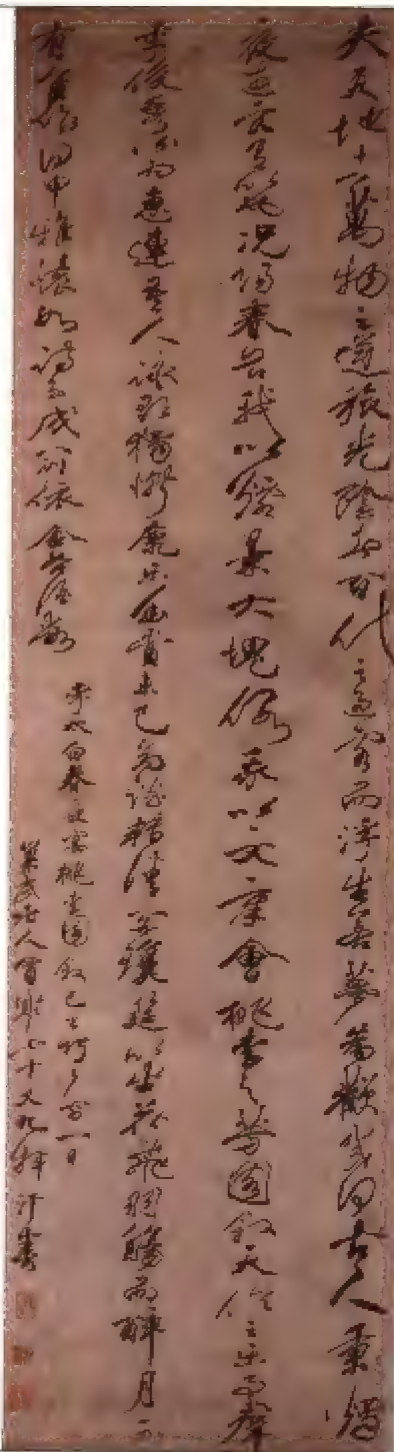 夫天地者萬物之逆旅光陰者百代之過客而浮生若夢為歡幾何古人秉燭
夜遊良有以也況陽春召我以煙景大塊假我以文章會桃李之芳園敘天倫之樂事群
季俊秀皆為惠連吾人詠歌獨慚康樂幽賞未已高談轉清開瓊筵以坐花飛羽觴而醉月不
有佳作何申雅懷如詩不成罰依金谷酒數
李太白春夜宴桃李園敘 一日
老人 七十又九 書